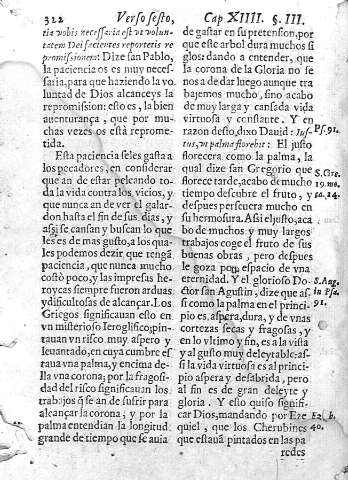 322 Verso sesto, Cap XIIII. §. III.
tia vobis necessaria est vt volun-
tatem Dei facientes reportetis re
promissionem: Dize san Pablo,
la paciencia os es muy neces-
saria, para que haziendo la vo
luntad de Dios alcanceys la
repromission: esto es, la bien
auenturança, que por mu-
chas vezes os està reprome-
tida.
Esta paciencia fieles gasta a
los pecadores, en considerar
que an de estar peleando to-
da la vida contra los vicios, y
que nunca an de ver el galar-
don hasta el fin de sus dias, y
assi se cansan y buscan lo que
les es de mas gusto, a los qua-
les podemos dezir que tengã
paciencia, que nunca mucho
costò poco, y las impresas he-
roycas siempre fueron arduas
y dificultosas de alcançar. Los
Griegos significauan esto en
vn misterioso Ieroglifico; pin-
tauan vn risco muy aspero y
leuantado, en cuya cumbre es
taua vna palma, y encima de-
lla vna corona; por la fragosi-
dad del risco significauan los
trabajos q̃ se an de sufrir para
alcançar la corona; y por la
palma entendian la longitud
grande de tiempo que se auia
de gastar en su pretension, por
que este arbol dura muchos si
glos: dando a entender, que
la corona de la Gloria no se
nos a de dar luego aunque tra
bajemos mucho, sino acabo
de muy larga y cansada vida
virtuosa y constante. Y en
razon desto, dixo Dauid: Ius-
tus, vt palma florebit: El justo
florecera como la palma, la
qual dize san Gregorio que
florece tarde, acabo de mucho
tiempo descubre el fruto, y
despues perseuera mucho en
su hermosura. Assi el justo, aca
bo de muchos y muy largos
trabajos coge el fruto de sus
buenas obras, pero despues
le goza por espacio de vna
eternidad. Y el glorioso Do-
ctor san Agustin, dize que as-
si como la palma en el princi-
pio es, aspera, dura, y de vnas
cortezas secas y fragosas, y
en lo vltimo y fin, es a la vista
y al gusto muy deleytable; as-
si la vida virtuosa es al princi-
pio aspera y desabrida, pero
al fin es de gran deleyte y
gloria. Y esto quiso signifi-
car Dios, mandando por Eze
quiel, que los Cherubines
que estauã pintados en las pa
redes
Ps. 91.
S. Gre.
19. mo.
ca. 24.
S. Aug.
in Psa.
91.
40.